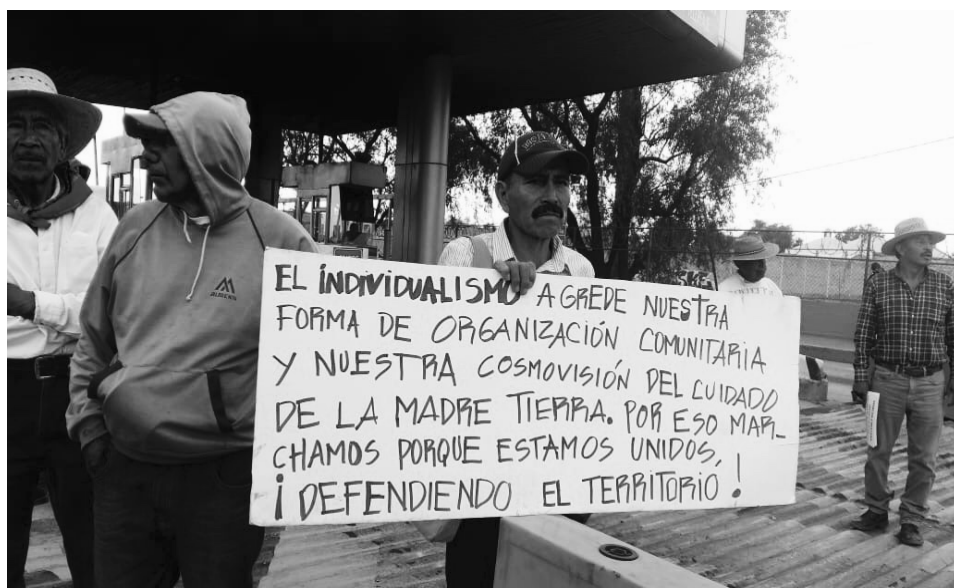 EL INDIVIDUALISMO AGREDE NUESTRA
FORMA DE ORGANIZACIÓN COMUNITARIA
Y NUESTRA COSMOVISIÓN DEL CUIDADO
DE LA MADRE TIERRA. POR ESO MAR_
CHAMOS PORQUE ESTAMOS UNIDOS,
¡DEFENDIENDO EL TERRITORIO!